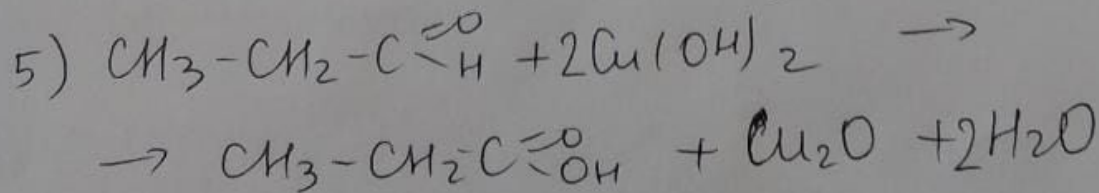 5) CH3-CH2-C=O-H + 2Cu(OH)2 →
→ CH3-CH2-C=O-OH + Cu2O + 2H2O